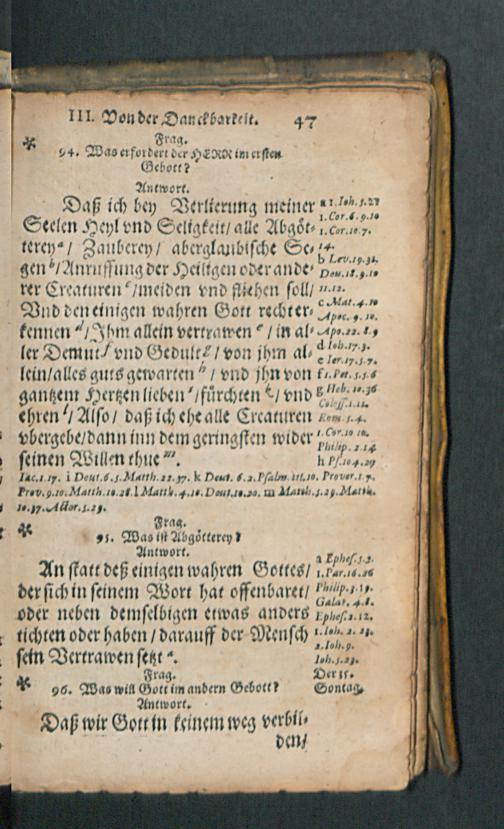 III. Von der Danckbarkeit. 47
Frag.
94. Was erfordert der HERR im ersten
Gebott?
Antwort.
Daß ich bey Verlierung meiner
Seelen Heyl vnd Seligkeit/ alle Abgöt-
terey a/ Zauberey/ aberglaubische Se-
gen b/ Anruffung der Heiligen oder ande-
rer Creaturen c/ meiden vnd fliehen soll/
Vnd den einigen wahren Gott rechter-
kennen d/ Ihm allein vertrawen e/ in al-
ler Demut f vnd Gedult g/ von jhm al-
lein/ alles guts gewarten h/ vnd jhn von
gantzem Hertzen lieben i/ fürchten k/ vnd
ehren l/ Also/ daß ich ehe alle Creaturen
vbergebe/ dann inn dem geringsten wider
seinen Willen thue m.
a 1. Ioh. 5.21
1. Cor. 6.9.10
1. Cor. 10.7.
14.
b Lev. 19.31.
Deu. 18.9.10
11.12.
c Mat. 4.10
Apoc. 9.10.
Apo. 22.8.9
d Ioh. 17.3.
e Ier. 17.5.7.
f 1. Pet. 5.5.6
g Heb. 10.36
Coloss. 1.11.
Rom. 5.4.
1. Cor. 10.10.
Philip. 2.14
h Ps. 104.27
Iac. 1.17. i Deut. 6.5. Matth. 22.37. k Deut. 6.2. Psalm. 111.10. Prover. 1.7.
Prov. 9.10. Matth. 10.28. l Matth. 4.10. Deut. 10.20. m Matth. 5.29. Matth.
10.37. Actor. 5.29.
Frag.
95. Was ist Abgötterey?
Antwort.
An statt deß einigen wahren Gottes/
der sich in seinem Wort hat offenbaret/
oder neben demselbigen etwas anders
tichten oder haben/ darauff der Mensch
sein Vertrawen setzt a.
a Ephes. 5.5.
1. Par. 16.26
Philip. 3.19.
Galat. 4.8.
Ephes. 2.12.
1. Ioh. 2. 23.
2. Ioh. 9.
Ioh. 5.23.
Frag.
96. Was will Gott im andern Gebott?
Der 35.
Sontag.
Antwort.
Daß wir Gott in keinem weg verbil-
den/